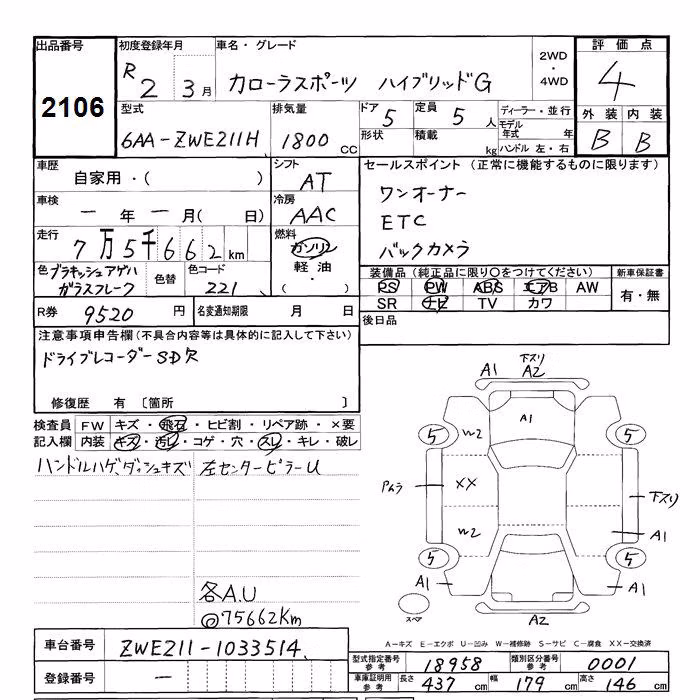 出品番号
2106
初度登録年月
R2 3月
車名・グレード
カローラスポーツ ハイブリッドG
2WD
・
4WD
評価点
4
型式
6AA-ZWE211H
排気量
1800 CC
ドア 5
定員 5 人
形状
積載 kg
ディーラー・並行
モデル年式 年
ハンドル 左・右
外装 内装
B B
車歴
自家用・( )
シフト
AT
車検
一年一月( 日)
冷房
AAC
走行
7万5千662km
燃料
ガソリン
軽油・
( )
色 ブラキッシュアゲハ
ガラスフレーク
色替
色コード
221
R券 9520 円
名変通知期限 月 日
セールスポイント (正常に機能するものに限ります)
ワンオーナー
ETC
バックカメラ
装備品(純正品に限り○をつけてください)
PS PW ABS エアB AW
SR ナビ TV カワ
新車保証書
有・無
後日品
注意事項申告欄(不具合内容等は具体的に記入して下さい)
ドライブレコーダーSD欠
修復歴 有 〔箇所 〕
検査員記入欄
FW キズ・飛石・ヒビ割・リペア跡・×要
内装 キズ・汚レ・コゲ・穴・スレ・キレ・破レ
ハンドルハゲ、ダッシュキズ
左センターピラーU
各A.U
@75662Km
下スリ
A1 A2
A1
5 W2 5
Pムラ XX 下スリ
W2 A1
5 5
A1 A1
スペア
A2
A-キズ E-エクボ U-凹み W-補修跡 S-サビ C-腐食 XX-交換済
車台番号 ZWE211-1033514
登録番号 ー
型式指定番号 参考 18958
類別区分番号 参考 0001
車庫証明用 参考 長さ 437 cm 幅 179 cm 高さ 146 cm